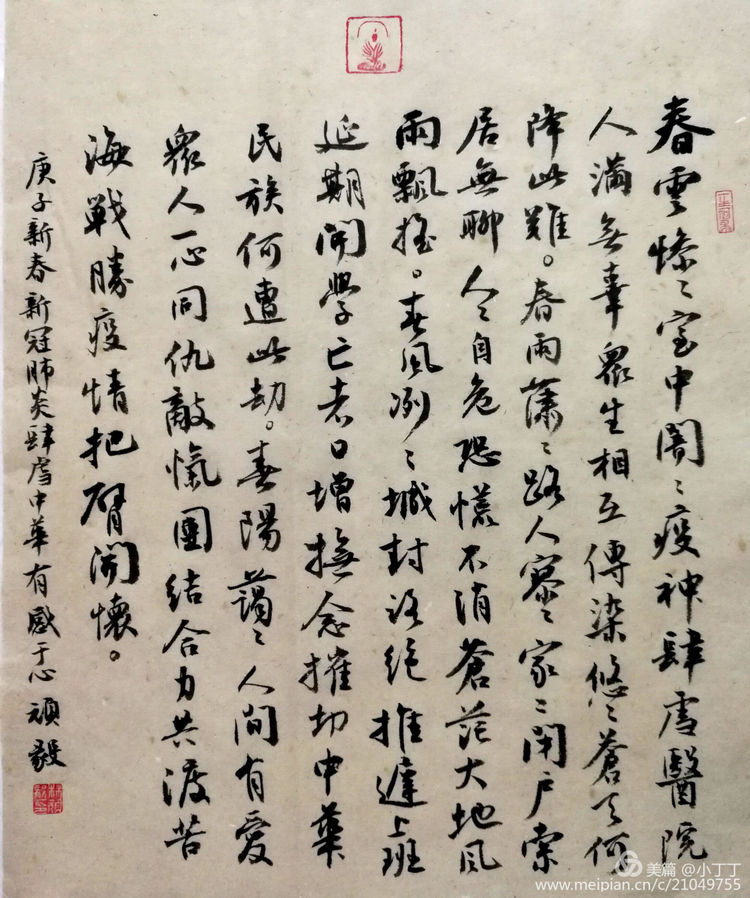 春雲慘〻室中闇〻疫神肆虐醫院
人滿無辜眾生相互傳染悠〻蒼天何
降此難。春雨蕭〻路人寥〻家〻閉戶索
居無聊人〻自危恐慌不消蒼茫大地風
雨飄搖。春風冽〻城封路絕推遲上班
延期開學亡者日增撫念摧切中華
民族何遭此劫。春陽藹〻人間有愛
眾人一心同仇敵愾團結合力共渡苦
海戰勝疫情把臂開懷。
庚子新春新冠肺炎肆虐中華有感于心 頑毅
美篇 @小丁丁
www.meipian.cn/c/21049755